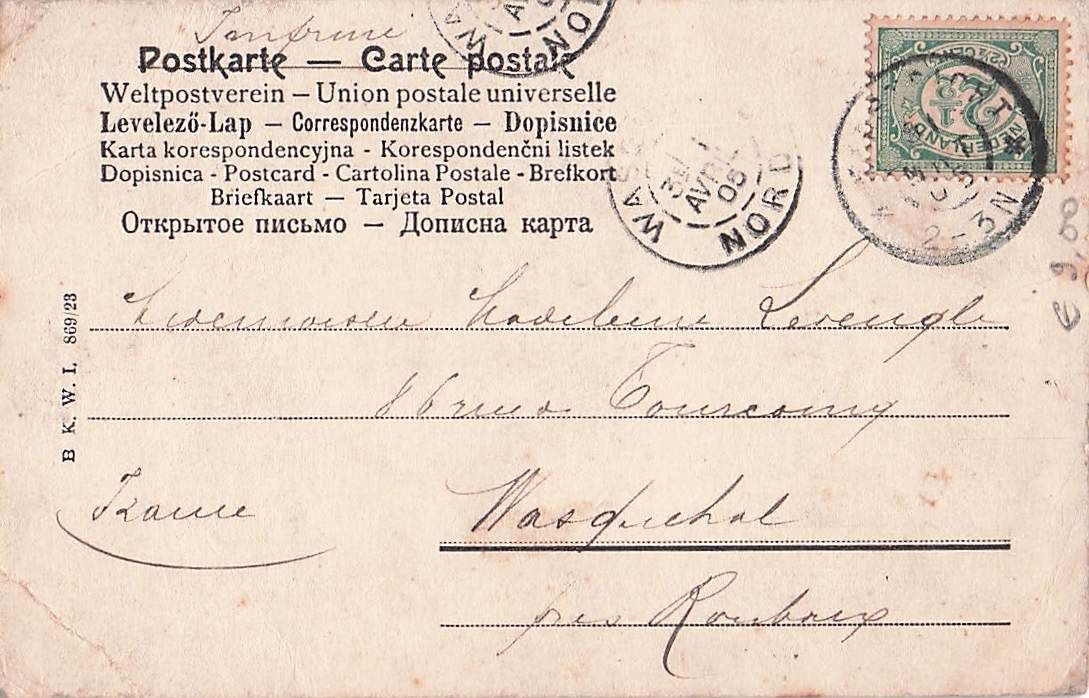 Postkarte — Carte postale
Weltpostverein – Union postale universelle
Levelező-Lap – Correspondenzkarte – Dopisnice
Karta korespondencyjna - Korespondenční listek
Dopisnica - Postcard - Cartolina Postale - Brefkort
Briefkaart — Tarjeta Postal
Открытое письмо — Дописна карта
WAS
AVRIL
05
NORD
WA
AV
NOR
2½ CENT
NEDERLAND
2-3N
€ 9,00
B K. W. I. 869/23
Madeleine
86 rue de Tourcoing
Wasquehal
France
près Roubaix